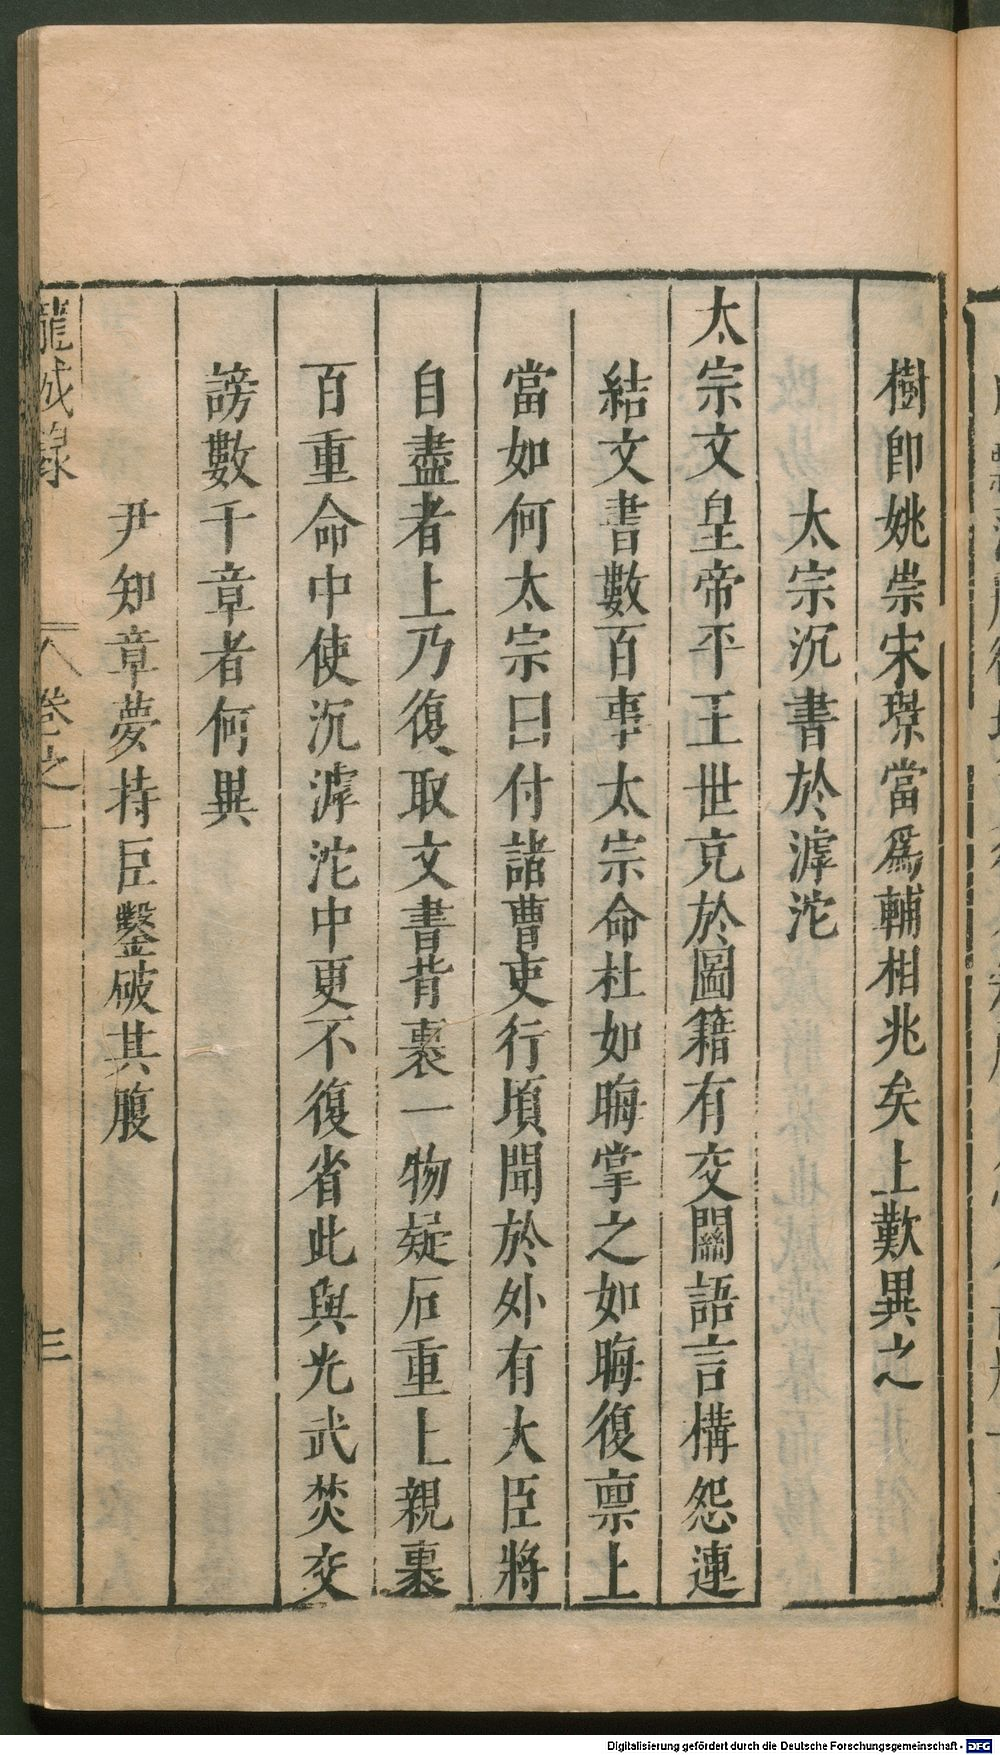 樹卽姚崇宋璟當爲輔相兆矣上歎異之
太宗沉書於滹沱
太宗文皇帝平王世充於圖籍有交關語言構怨連
結文書數百事太宗命杜如晦掌之如晦復禀上
當如何太宗曰付諸曹吏行頃聞於外有大臣將
自盡者上乃復取文書背裹一物疑石重上親裹
百重命中使沉滹沱中更不復省此與光武焚交
謗數千章者何異
尹知章夢持巨鑿破其腹
龍城錄 卷之一 三
Digitalisierung gefördert durch die Deutsche Forschungsgemeinschaft - DFG